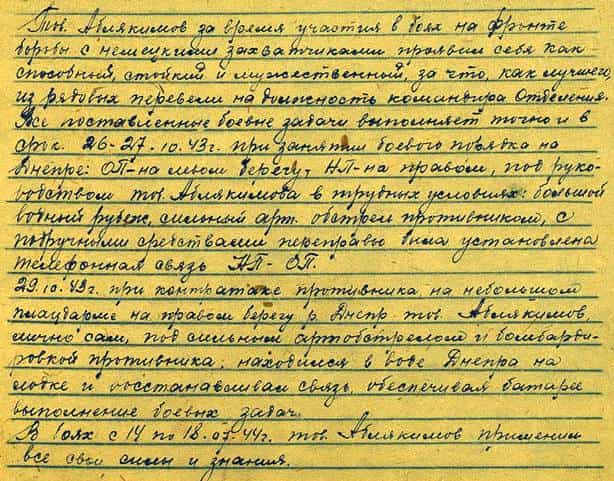 Тов. Аблякимов за время участия в боях на фронте
борьбы с немецкими захватчиками проявил себя как
способный, стойкий и мужественный, за что, как лучшего,
из рядовых перевели на должность командира Отделения.
Все поставленные боевые задачи выполняет точно и в
срок. 26-27.10.43г. при занятии боевого порядка на
Днепре: ОП-на левом берегу, НП-на правом, под руко-
водством тов. Аблякимова в трудных условиях: большой
водный рубеж, сильный арт. обстрел противником, с
подручными средствами переправы была установлена
телефонная связь НП-ОП.
29.10.43г. при контратаке противника, на небольшом
плацдарме на правом берегу р. Днепр тов. Аблякимов,
лично сам, под сильным артобстрелом и бомбарди-
ровкой противника, находился в воде Днепра на
лодке и восстанавливал связь, обеспечивая батарее
выполнение боевых задач.
В боях с 14 по 18.07.44г. тов. Аблякимов применил
все свои силы и знания.